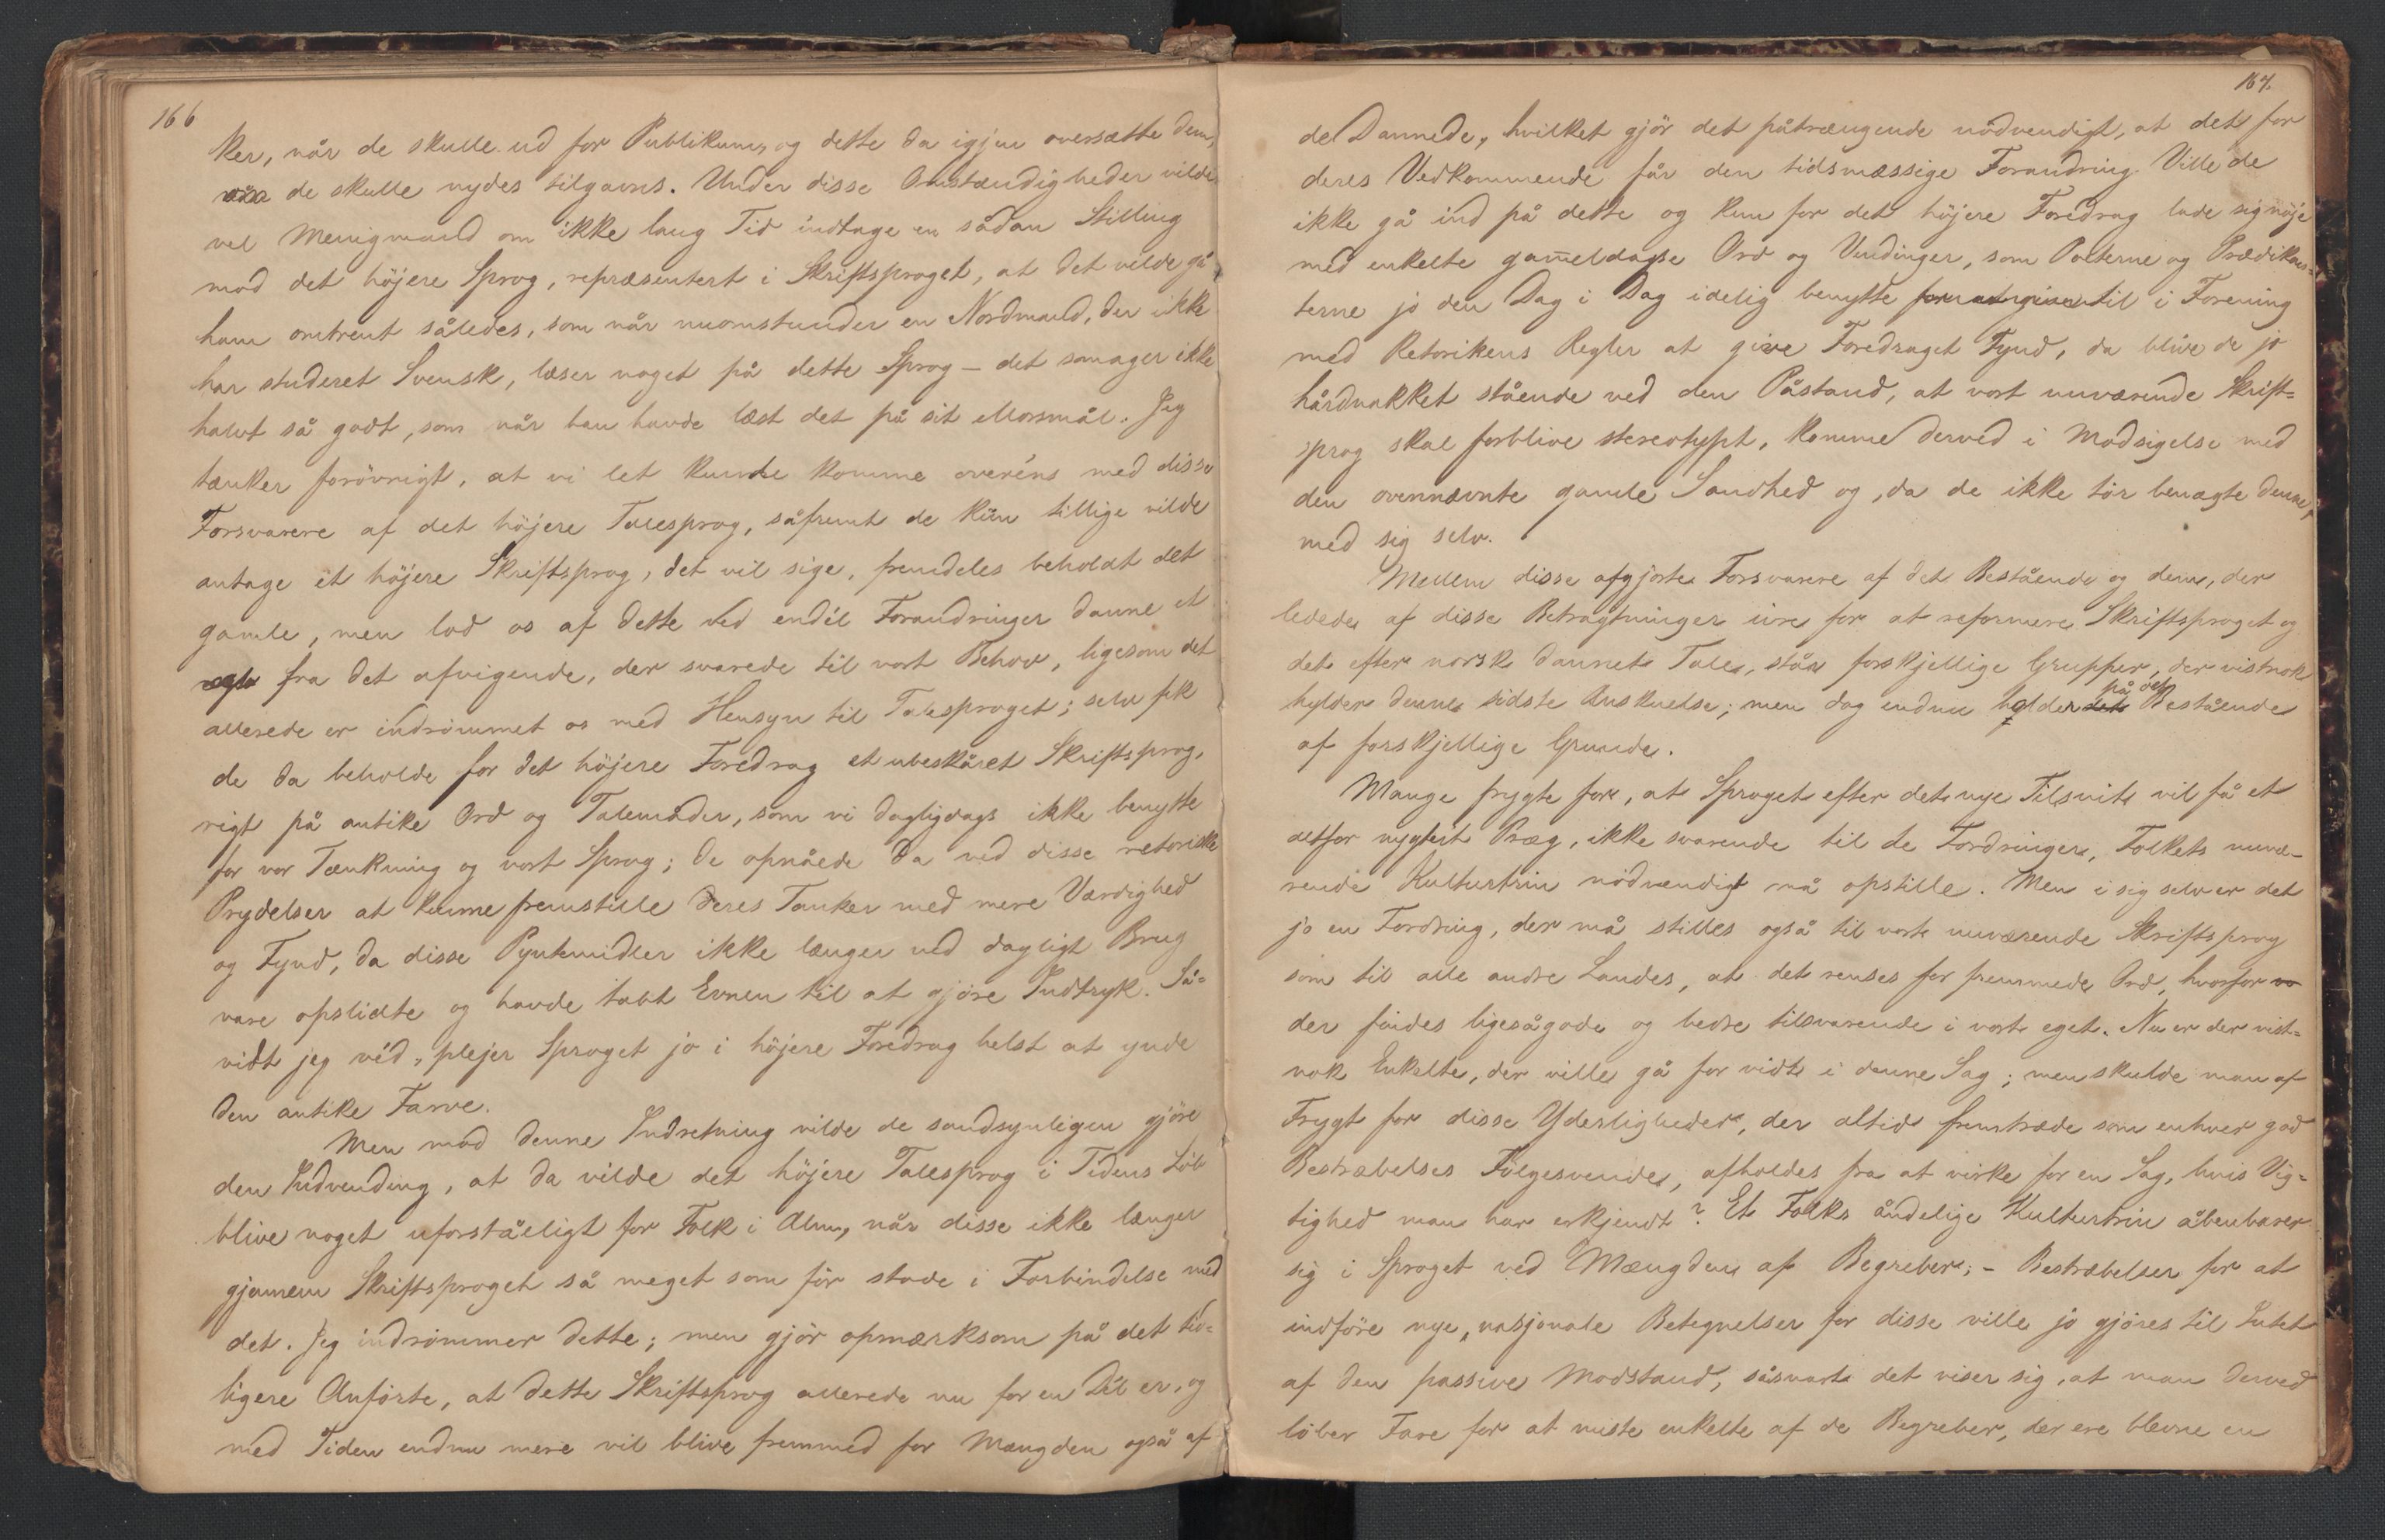 166
ker, når de skulle ud for Publikum, og dette da igjen oversætte dem,
når de skulle nydes tilgavns. Under disse Omstændigheder vilde
vel Menigmand om ikke lang Tid indtage en sådan Stilling
mod det höjere Sprog, repræsentert i Skriftsproget, at det vilde gå
ham omtrent således, som når nuomstunder en Nordmand, der ikke
har studeret Svensk, læser noget på dette Sprog – det smager ikke
halvt så godt, som når han havde læst det på sit Morsmål. Jeg
tænker forövrigt, at vi let kunde komme overéns med disse
Forsvarere af det höjere Talesprog, såfremt de kun tillige vilde
antage et höjere Skriftsprog, det vil sige, fremdeles beholdt det
gamle, men lod os af dette ved endél Forandringer danne et
fra det afvigende, der svarede til vort Behov, ligesom det
allerede er indrömmet os med Hensyn til Talesproget; selv fik
de da beholde for det höjere Foredrag et ubeskåret Skriftsprog,
rigt på antike Ord og Talemåder, som vi dagligdags ikke benytte
for vor Tænkning og vort Sprog; de opnåede da ved disse retoriske
Prydelser at kunne fremstille deres Tanker med mere Værdighed
og Fynd, da disse Pyntemidler ikke længer ved dagligt Brug
vare opslidte og havde tabt Evnen til at gjöre Indtryk. Så-
vidt jeg véd, plejer Sproget jo i höjere Foredrag helst at ynde
den antike Farve.
Men mod denne Indretning vilde de sandsynligen gjöre
den Indvending, at da vilde det höjere Talesprog i Tidens Löb
blive noget uforståeligt for Folk i Alm., når disse ikke længer
gjennem Skriftsproget så meget som för stode i Forbindelse med
det. Jeg indrömmer dette; men gjör opmærksom på det tid-
ligere Anförte, at dette Skriftsprog allerede nu for en Dél er, og
med Tiden endnu mere vil blive fremmed for Mængden også af
167.
de Dannede, hvilket gjör det påtrængende nödvendigt, at det for
deres Vedkommende får den tidsmæssige Forandring. Ville de
ikke gå ind på dette og kun for det höjere Foredrag lade sig nöje
med enkelte gam̄eldagse Ord og Vendinger, som Poeterne og Prædikan-
terne jo den Dag i Dag idelig benytte for at give til i Forening
med Retorikens Regler at give Foredraget Fynd, da blive de jo
hårdnakket stående ved den Påstand, at vort nuværende Skrift-
sprog skal forblive stereotypt, komme derved i Modsigelse med
den ovennævnte gamle Sandhed og, da de ikke tör benægte denne,
med sig selv.
Mellem disse afgjorte Forsvarere af det Bestående og dem, der
ledede af disse Betragtninger ivre for at reformere Skriftsproget og
det efter norsk dannet Tale, står forskjellige Grupper, der vistnok
hylder denne sidste Anskuelse; men dog endnu holder det på det Bestående
af forskjellige Grunde.
Mange frygte for, at Sproget efter det nye Tilsnit vil få et
altfor nygjort Præg, ikke svarende til de Fordringer, Folkets nuvæ-
rende Kulturtrin nödvendigt må opstille. Men i sig selv er det
jo en Fordring, der må stilles også til vort nuværende Skriftsprog
som til alle andre Landes, at det renses for fremmede Ord, hvorfor vo
der findes ligesågode og bedre tilsvarende i vort eget. Nu er der vist-
nok Enkelte, der ville gå for vidt i denne Sag; men skulde man af
Frygt for disse Yderligheder, der altid fremtræde som enhver god
Bestræbelses Fölgesvende, afholdes fra at virke for en Sag, hvis Vig-
tighed man har erkjendt? Et Folks åndelige Kulturtrin åbenbarer
sig i Sproget ved Mængden af Begreber; – Bestræbelser for at
indföre nye, nasjonale Betegnelser for disse ville jo gjöres til Intet
af den passive Modstand, såsnart det viser sig, at man derved
löber Fare for at miste enkelte af de Begreber, der ere blevne en